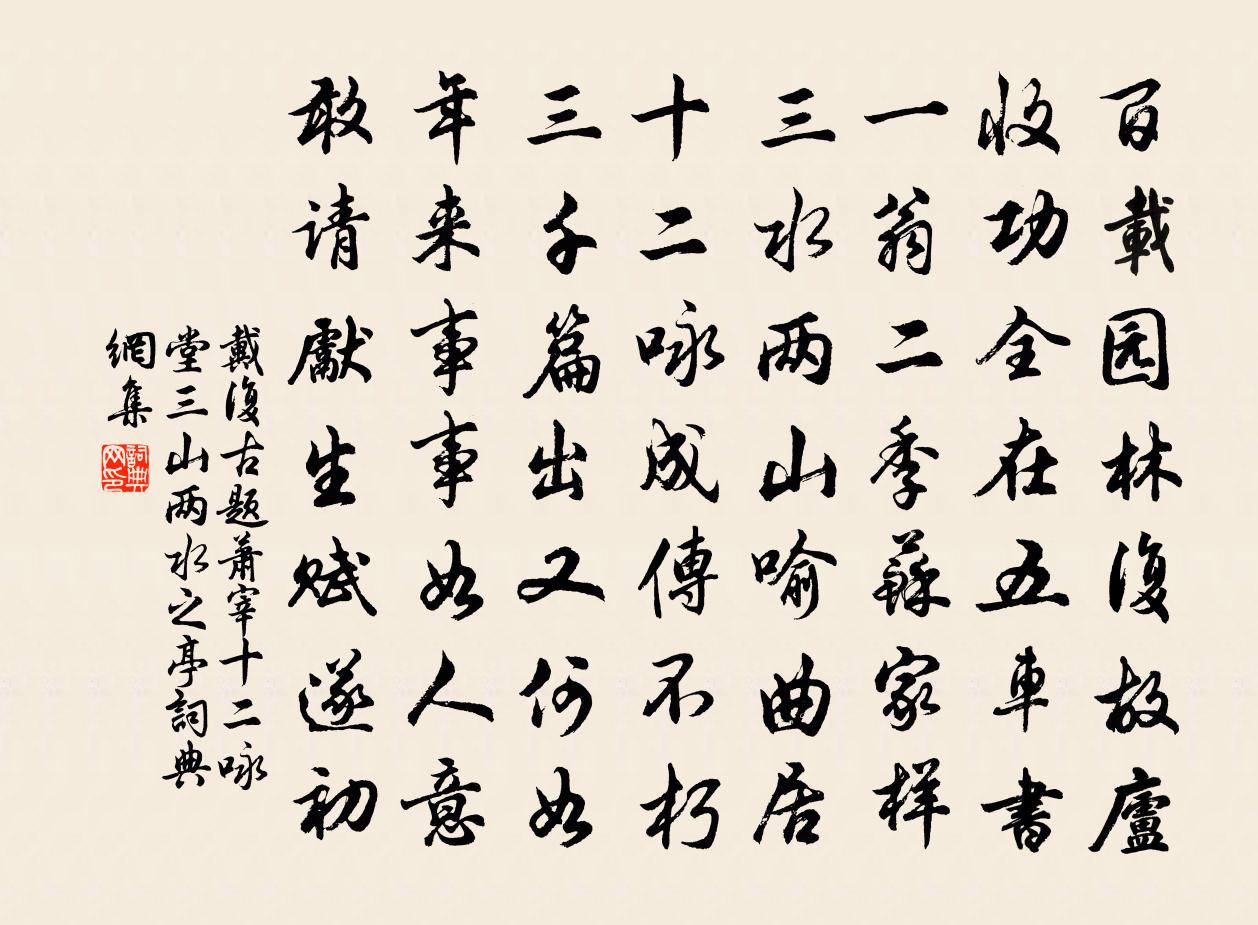 百載园林復故廬
收功全在五車書
一翁二季蘇家样
三水两山喻曲居
十二咏成傳不朽
三千篇出又何如
年来事事如人意
敢请獻生赋遂初
戴復古题萧宰十二咏
堂三山两水之亭詞典
網集
詞典网印